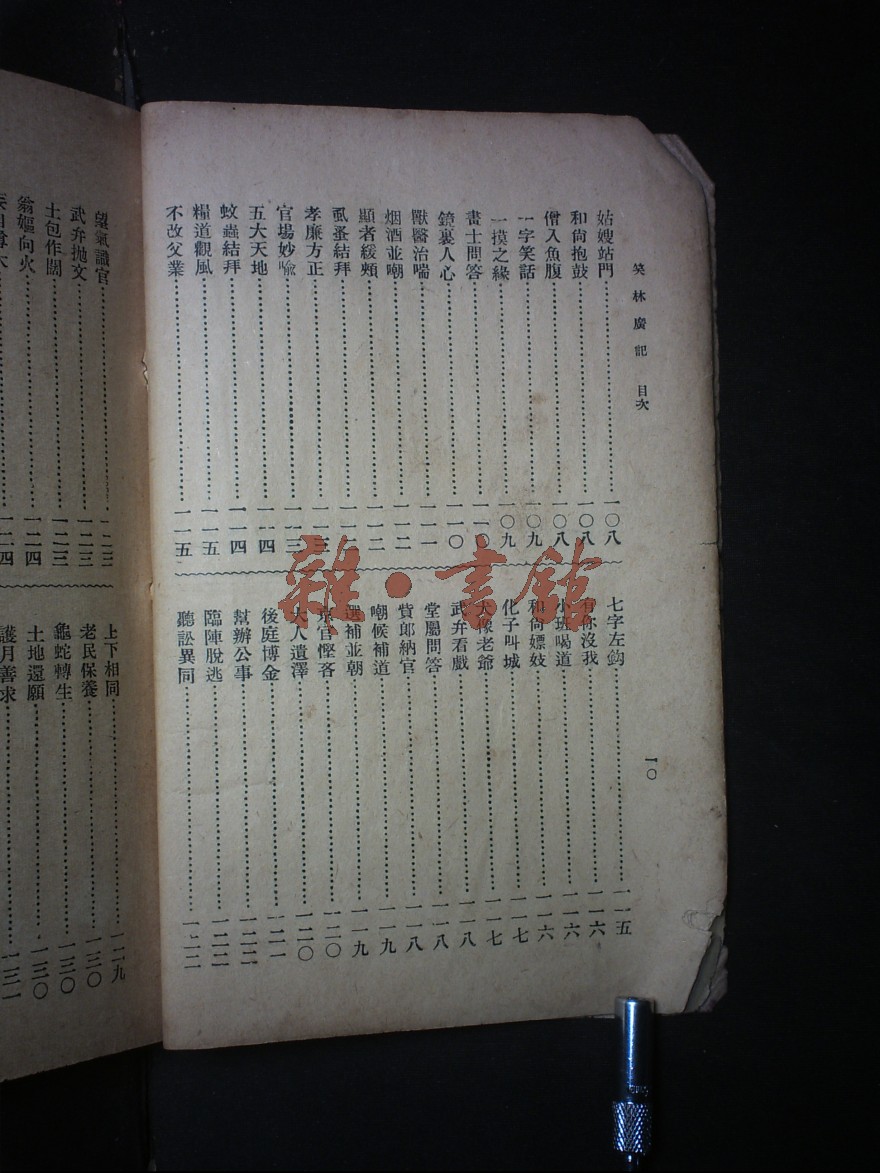 笑林廣記 目次
一〇
姑嫂站門……一〇八
和尙抱鼓……一〇八
僧入魚腹……一〇八
一字笑話……一〇九
一摸之緣……一〇九
畫士問答……一一〇
鏡裏人心……一一〇
獸醫治喘……一一一
烟酒並嘲……一一二
顯者緩頰……一一二
虱蚤結拜……
孝廉方正……一一三
官場妙喩……一一三
五大天地……一一四
蚊蟲結拜……一一四
糧道觀風……一一五
不改父業……一一五
七字左鈎……一一五
有你沒我……一一六
小班喝道……一一六
和尙嫖妓……一一六
化子叫城……一一七
大像老爺……一一七
武弁看戲……一一八
堂屬問答……一一八
貲郞納官……一一八
嘲候補道……一一九
選補並朝……一一九
京官慳吝……一二〇
大人遺澤……一二〇
後庭博金……一二一
幫辦公事……一二二
臨陣脫逃……一二二
聽訟異同……一二二
望氣識官……一二三
武弁抛文……一二三
土包作闊……一二三
翁嫗向火……一二四
一二四
上下相同……一二九
老民保養……一三〇
龜蛇轉生……一三〇
土地還願……一三〇
護月善求……一三一
雜·書舘